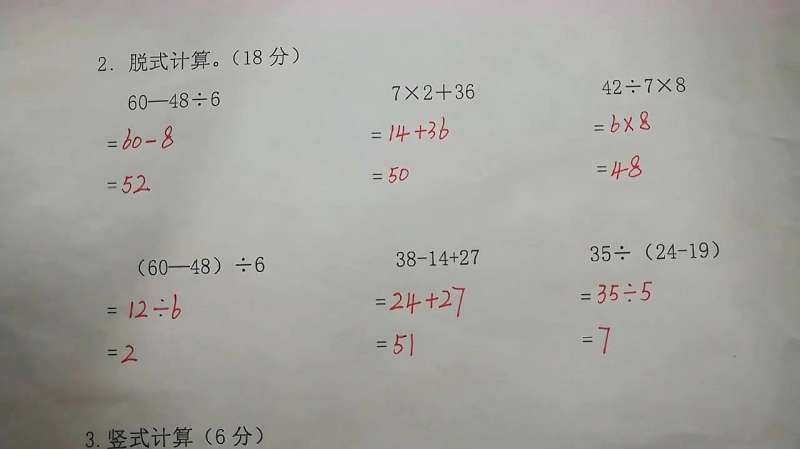 2. 脱式计算。（18 分）
60—48÷6 7×2＋36 42÷7×8
=60-8 =14+36 =6×8
=52 =50 =48
（60—48）÷6 38-14+27 35÷（24-19）
=12÷6 =24+27 =35÷5
=2 =51 =7
3.竖式计算（6 分）